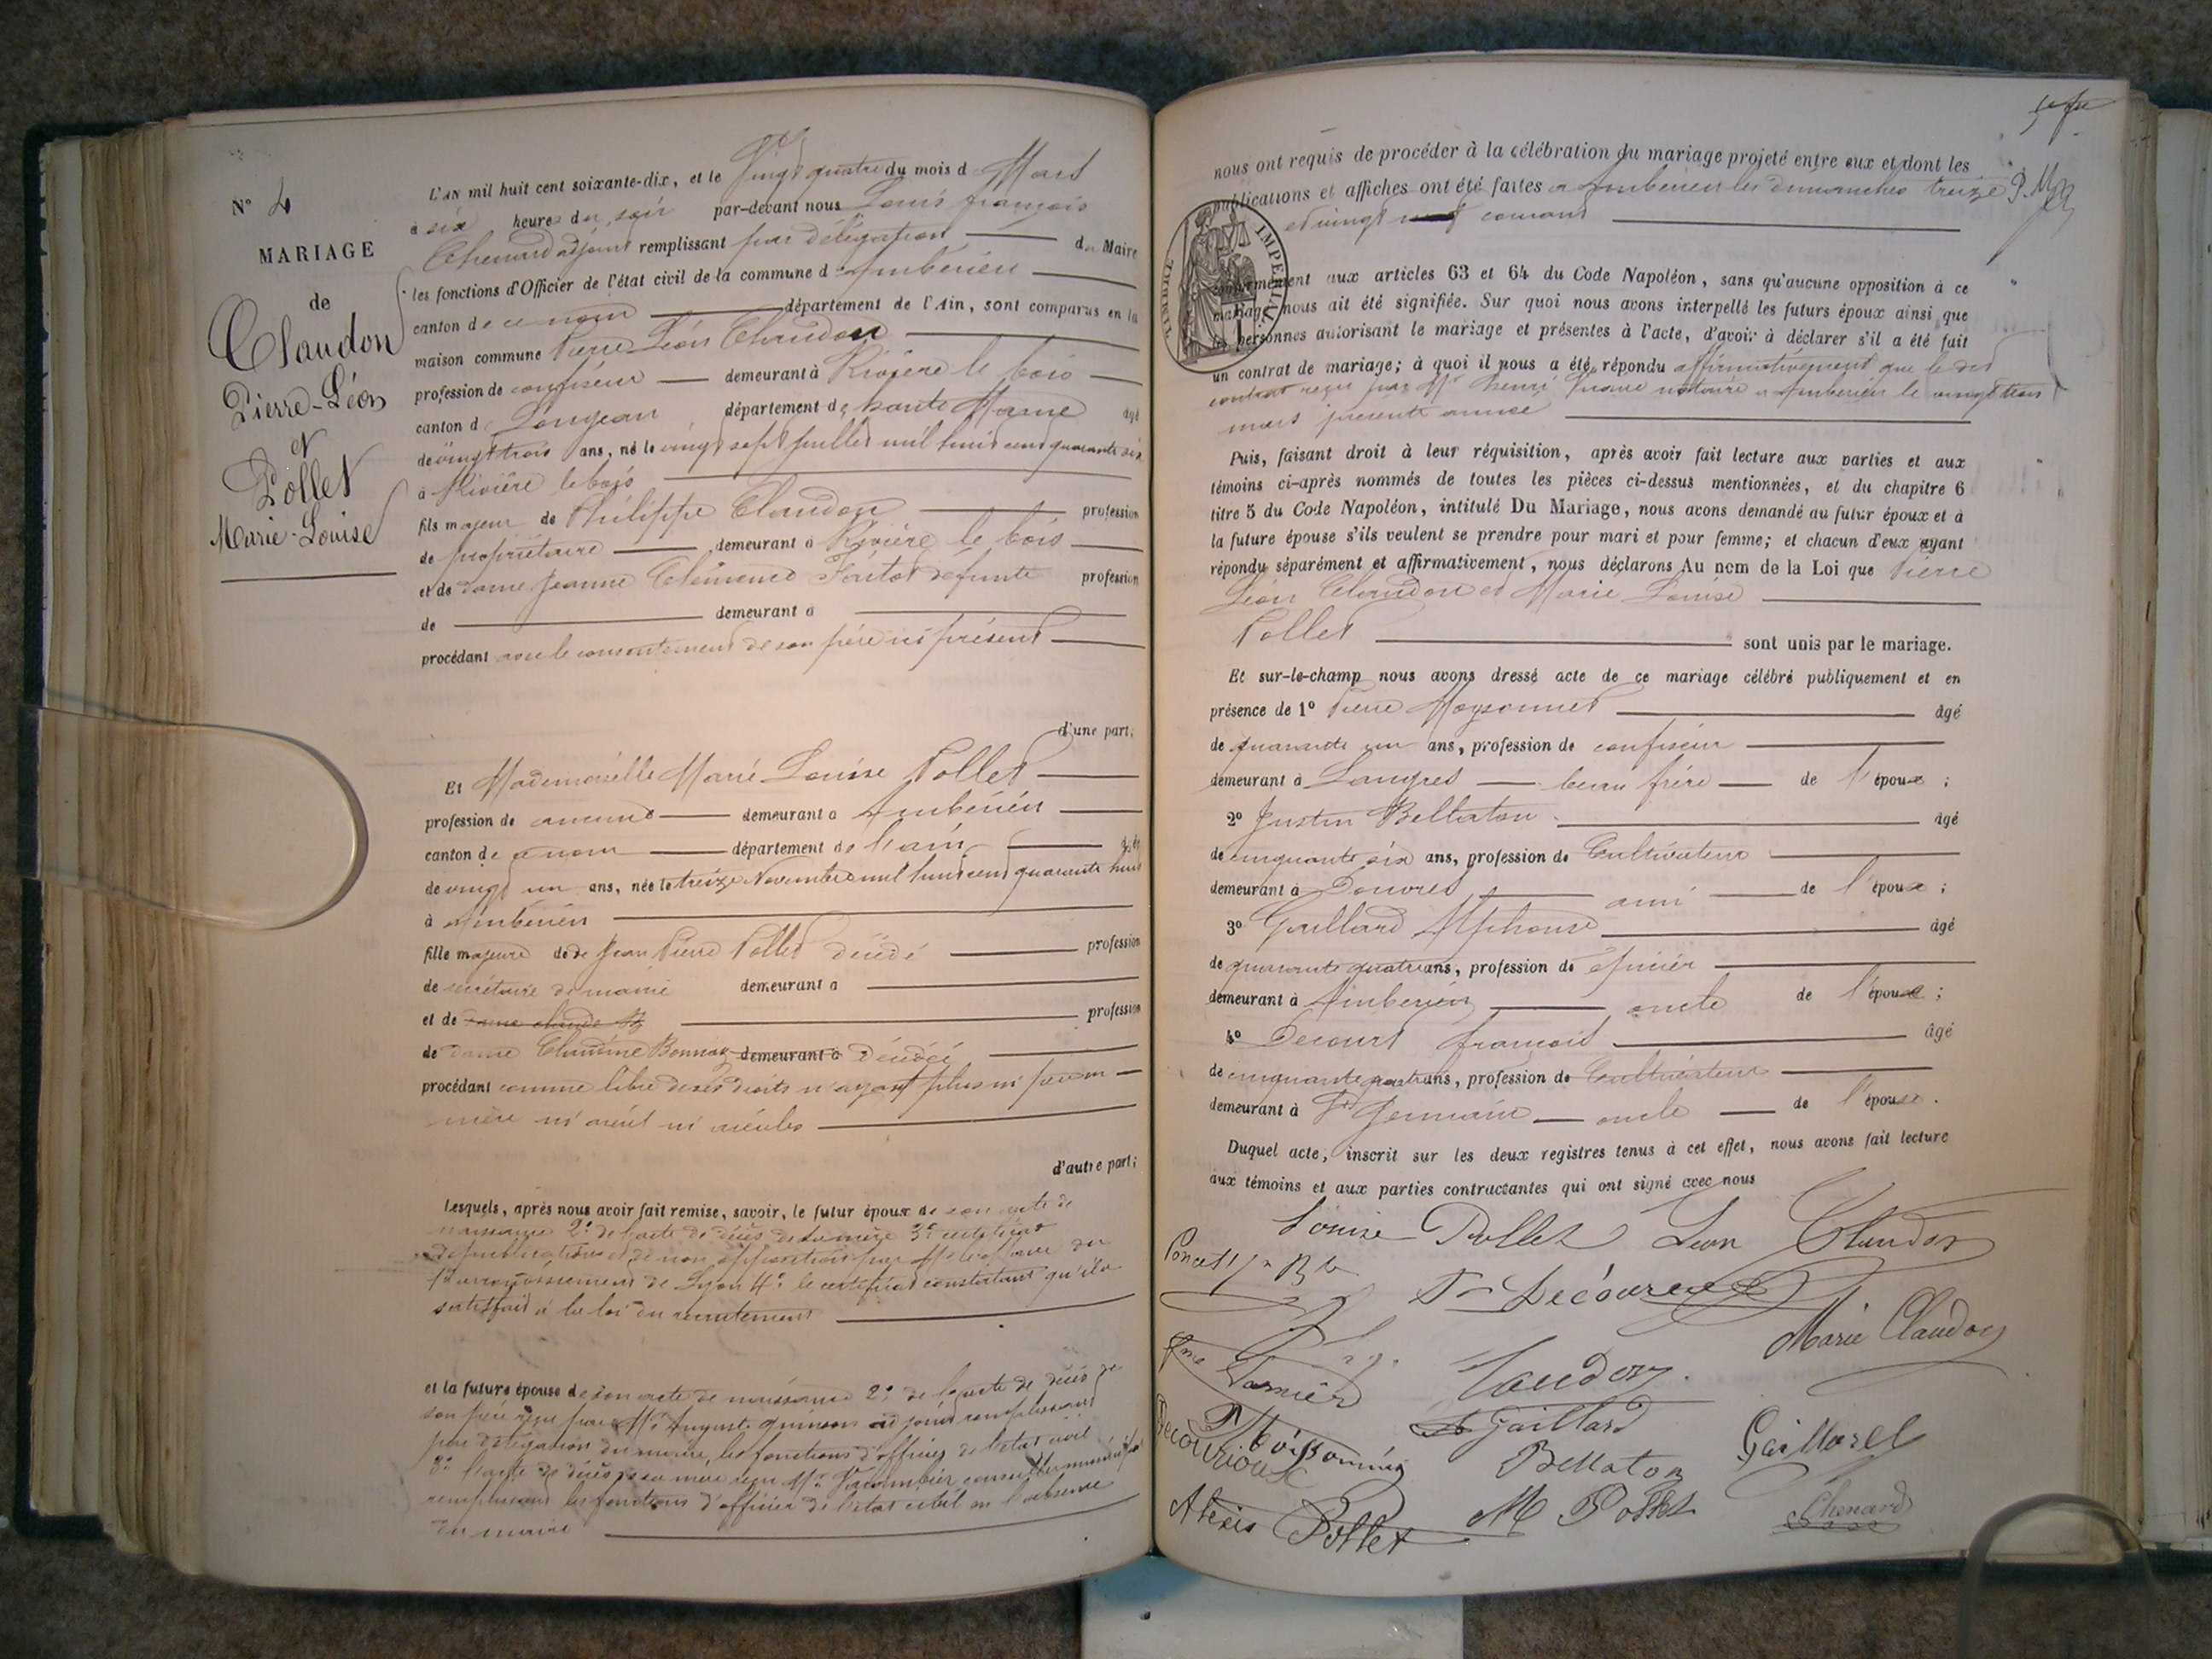 N° 4
MARIAGE
de
Claudon
Pierre-Léon
et
Pollet
Marie-Louise
L'AN mil huit cent soixante-dix, et le Vingt quatre du mois d Mars
à six heures du soir par-devant nous Louis françois
Chenard adjoint remplissant par délégation du Maire
les fonctions d'Officier de l'état civil de la commune d'Ambérieu
canton de ce nom département de l'Ain, sont comparus en la
maison commune Pierre Léon Claudon
profession de confiseur demeurant à Rivière le bois
canton d Longeau département de haute Marne âgé
de vingt trois ans, né le vingt sept juillet mil huit cent quarante six
à Rivière le bois
fils majeur de Philippe Claudon profession
de propriétaire demeurant à Rivière le bois
et de dame Jeanne Clémence défunte profession
de demeurant à
procédant avec le consentement de son père ici présent
d'une part;
Et Mademoiselle Marie Louise Pollet
profession de aucune demeurant à Ambérieu
canton de ce nom département de l'ain âgée
de vingt un ans, née le treize Novembre mil huit cent quarante huit
à Ambérieu
fille majeure de de Jean Pierre Pollet décédé profession
de secrétaire de mairie demeurant à
et de dame claude profession
de dame Claudine demeurant à décédée
procédant comme libre de ses droits n'ayant plus ni père ni
mère ni aïeul ni aïeules
d'autre part;
Lesquels, après nous avoir fait remise, savoir, le futur époux de son acte de
naissance 2° de l'acte de décès de sa mère 3° certificat
de publications et de non opposition par Mr le Maire du
arrondissement de Lyon 4° le certificat constatant qu'il a
satisfait à la loi du recrutement
et la future épouse de son acte de naissance 2° de l'acte de décès de
son père reçu par Mr Auguste adjoint remplissant
par délégation du maire, les fonctions d'officier de l'état civil
3° l'acte de décès de sa mère reçu Mr conseiller municipal
remplissant les fonctions d'officier de l'état civil en l'absence
du maire
nous ont requis de procéder à la célébration du mariage projeté entre eux et dont les
publications et affiches ont été faites à Ambérieu les dimanches treize
et vingt courant
TIMBRE IMPERIAL
conformément aux articles 63 et 64 du Code Napoléon, sans qu'aucune opposition à ce
mariage nous ait été signifiée. Sur quoi nous avons interpellé les futurs époux ainsi que
les personnes autorisant le mariage et présentes à l'acte, d'avoir à déclarer s'il a été fait
un contrat de mariage; à quoi il nous a été répondu affirmativement que le dit
contrat reçu par Mr henri notaire à Ambérieu le vingt trois
mars présente année
Puis, faisant droit à leur réquisition, après avoir fait lecture aux parties et aux
témoins ci-après nommés de toutes les pièces ci-dessus mentionnées, et du chapitre 6
titre 5 du Code Napoléon, intitulé Du Mariage, nous avons demandé au futur époux et à
la future épouse s'ils veulent se prendre pour mari et pour femme; et chacun d'eux ayant
répondu séparément et affirmativement, nous déclarons Au nom de la Loi que Pierre
Léon Claudon et Marie Louise
Pollet sont unis par le mariage.
Et sur-le-champ nous avons dressé acte de ce mariage célébré publiquement et en
présence de 1° Pierre Moyssonnier âgé
de quarante un ans, profession de confiseur
demeurant à Langres beau frère de l'époux ;
2° Justin Bellaton âgé
de cinquante six ans, profession de Cultivateur
demeurant à Douvres ami de l'époux ;
3° Gaillard Alphonse âgé
de quarante quatre ans, profession de épicier
demeurant à Ambérieu oncle de l'épouse ;
4° Decourt françois âgé
de cinquante quatre ans, profession de Cultivateur
demeurant à St Germain oncle de l'épouse.
Duquel acte, inscrit sur les deux registres tenus à cet effet, nous avons fait lecture
aux témoins et aux parties contractantes qui ont signé avec nous
Louise Pollet Léon Claudon
Marie Claudon
Claudon
Gaillard
Bellaton
Gaillard
Alexis Pollet
M Pollet
Chenard